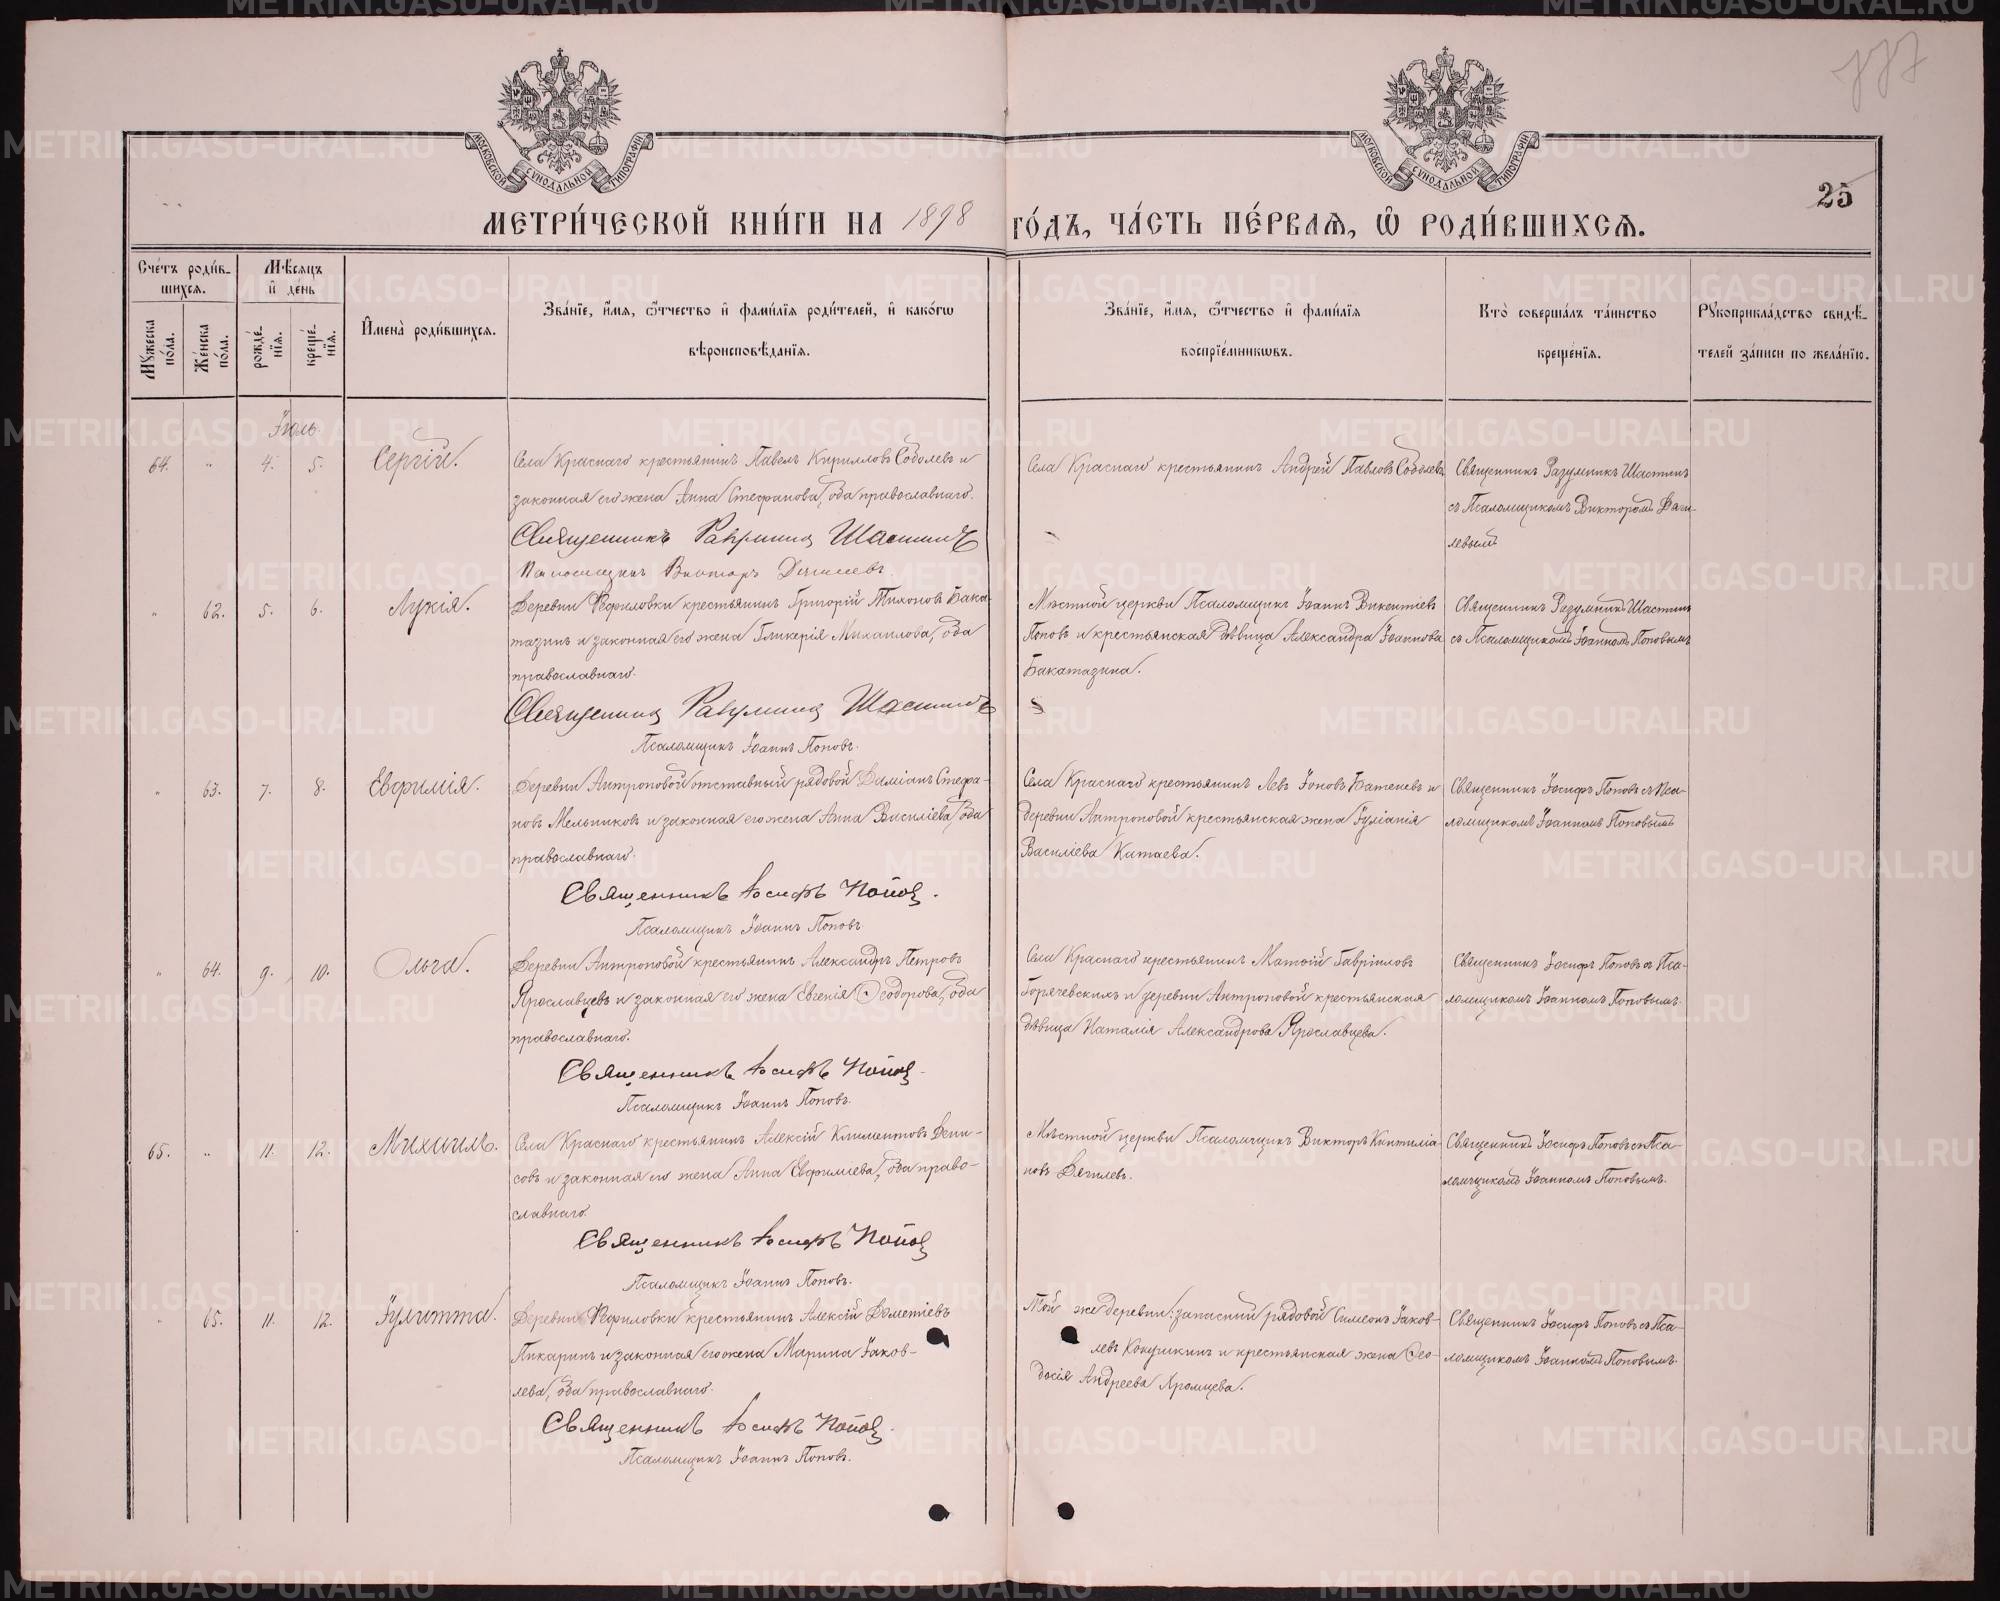 777
МОСКОВСКОЙ СУНОДАЛЬНОЙ ТИПОГРАФІИ
МОСКОВСКОЙ СУНОДАЛЬНОЙ ТИПОГРАФІИ
25
МЕТРИ́ЧЕСКОЙ КНИ́ГИ НА 1898 ГО́ДЪ, ЧА́СТЬ ПЕ́РВАѦ, Ѡ҆ РОДИ́ВШИХСѦ.
Сче́тъ роди́в-
шихсѧ.
Мѣ́сѧцъ
и҆ де́нь
Мꙋ́жеска
по́ла.
Же́нска
по́ла.
рожде́-
нїѧ.
креще́-
нїѧ.
И҆мена̀ роди́вшихсѧ.
Зва́нїе, и҆́мѧ, ѻ҆́тчество и҆ фами́лїѧ роди́телей, и҆ како́гѡ
вѣроисповѣ́данїѧ.
Зва́нїе, и҆́мѧ, ѻ҆́тчество и҆ фами́лїѧ
воспрїе́мникѡвъ.
Кто̀ соверша́лъ та́инство
креще́нїѧ.
Рꙋкоприкла́дство свидѣ́-
телей за́писи по жела́нїю.
Іюль.
64. " 4. 5. Сергій.
Села Краснаго крестьянинъ Павелъ Кирилловъ Соболевъ и
законная его жена Анна Стефанова, оба православнаго.
Священникъ Разумникъ Шастинъ
Псаломщикъ Викторъ Вячилевъ
Села Краснаго крестьянинъ Андрей Павловъ Соболевъ
Священникъ Разумникъ Шастинъ
съ Псаломщикомъ Викторомъ Вячи-
левымъ
" 62. 5. 6. Лукія.
Деревни Фефиловки крестьянинъ Григорій Тихоновъ Бака-
тазинъ и законная его жена Гликерія Михаилова, оба
православнаго.
Священникъ Разумникъ Шастинъ
Псаломщикъ Іоаннъ Поповъ.
Мѣстной церкви Псаломщикъ Іоаннъ Викентіевъ
Поповъ и крестьянская дѣвица Александра Іоаннова
Бакатазина.
Священникъ Разумникъ Шастинъ
съ Псаломщикомъ Іоанномъ Поповымъ
" 63. 7. 8. Евфимія.
Деревни Антроповой отставный рядовой Даміанъ Стефа-
новъ Мельниковъ и законная его жена Анна Василіева, оба
православнаго.
Священникъ Іосифъ Поповъ.
Псаломщикъ Іоаннъ Поповъ.
Села Краснаго крестьянинъ Левъ Іоновъ Батеневъ и
деревни Антроповой крестьянская жена Іуліанія
Василіева Китаева.
Священникъ Іосифъ Поповъ съ Пса-
ломщикомъ Іоанномъ Поповымъ
" 64. 9. 10. Ольга.
Деревни Антроповой крестьянинъ Александръ Петровъ
Ярославцевъ и законная его жена Евгенія Ѳеодорова, оба
православнаго.
Священникъ Іосифъ Поповъ
Псаломщикъ Іоаннъ Поповъ.
Села Краснаго крестьянинъ Матѳій Гавріиловъ
Горячевскихъ и деревни Антроповой крестьянская
дѣвица Наталія Александрова Ярославцева.
Священникъ Іосифъ Поповъ съ Пса-
ломщикомъ Іоанномъ Поповымъ.
65. " 11. 12. Михаилъ.
Села Краснаго крестьянинъ Алексій Климентовъ Дени-
совъ и законная его жена Анна Евфимиева, оба право-
славнаго.
Священникъ Іосифъ Поповъ
Псаломщикъ Іоаннъ Поповъ.
Мѣстной церкви Псаломщикъ Викторъ Кинтиліа-
новъ Вячилевъ.
Священникъ Іосифъ Поповъ съ Пса-
ломщикомъ Іоанномъ Поповымъ.
" 65. 11. 12. Іулитта.
Деревни Фефиловки крестьянинъ Алексій Дометіевъ
Пикаринъ и законная его жена Марина Іаков-
лева, оба православнаго.
Священникъ Іосифъ Поповъ.
Псаломщикъ Іоаннъ Поповъ.
Той же деревни: запасный рядовой Симеонъ Іаков-
левъ Кокушкинъ и крестьянская жена Ѳео-
досія Андреева Хромцева.
Священникъ Іосифъ Поповъ съ Пса-
ломщикомъ Іоанномъ Поповымъ.
METRIKI.GASO-URAL.RU